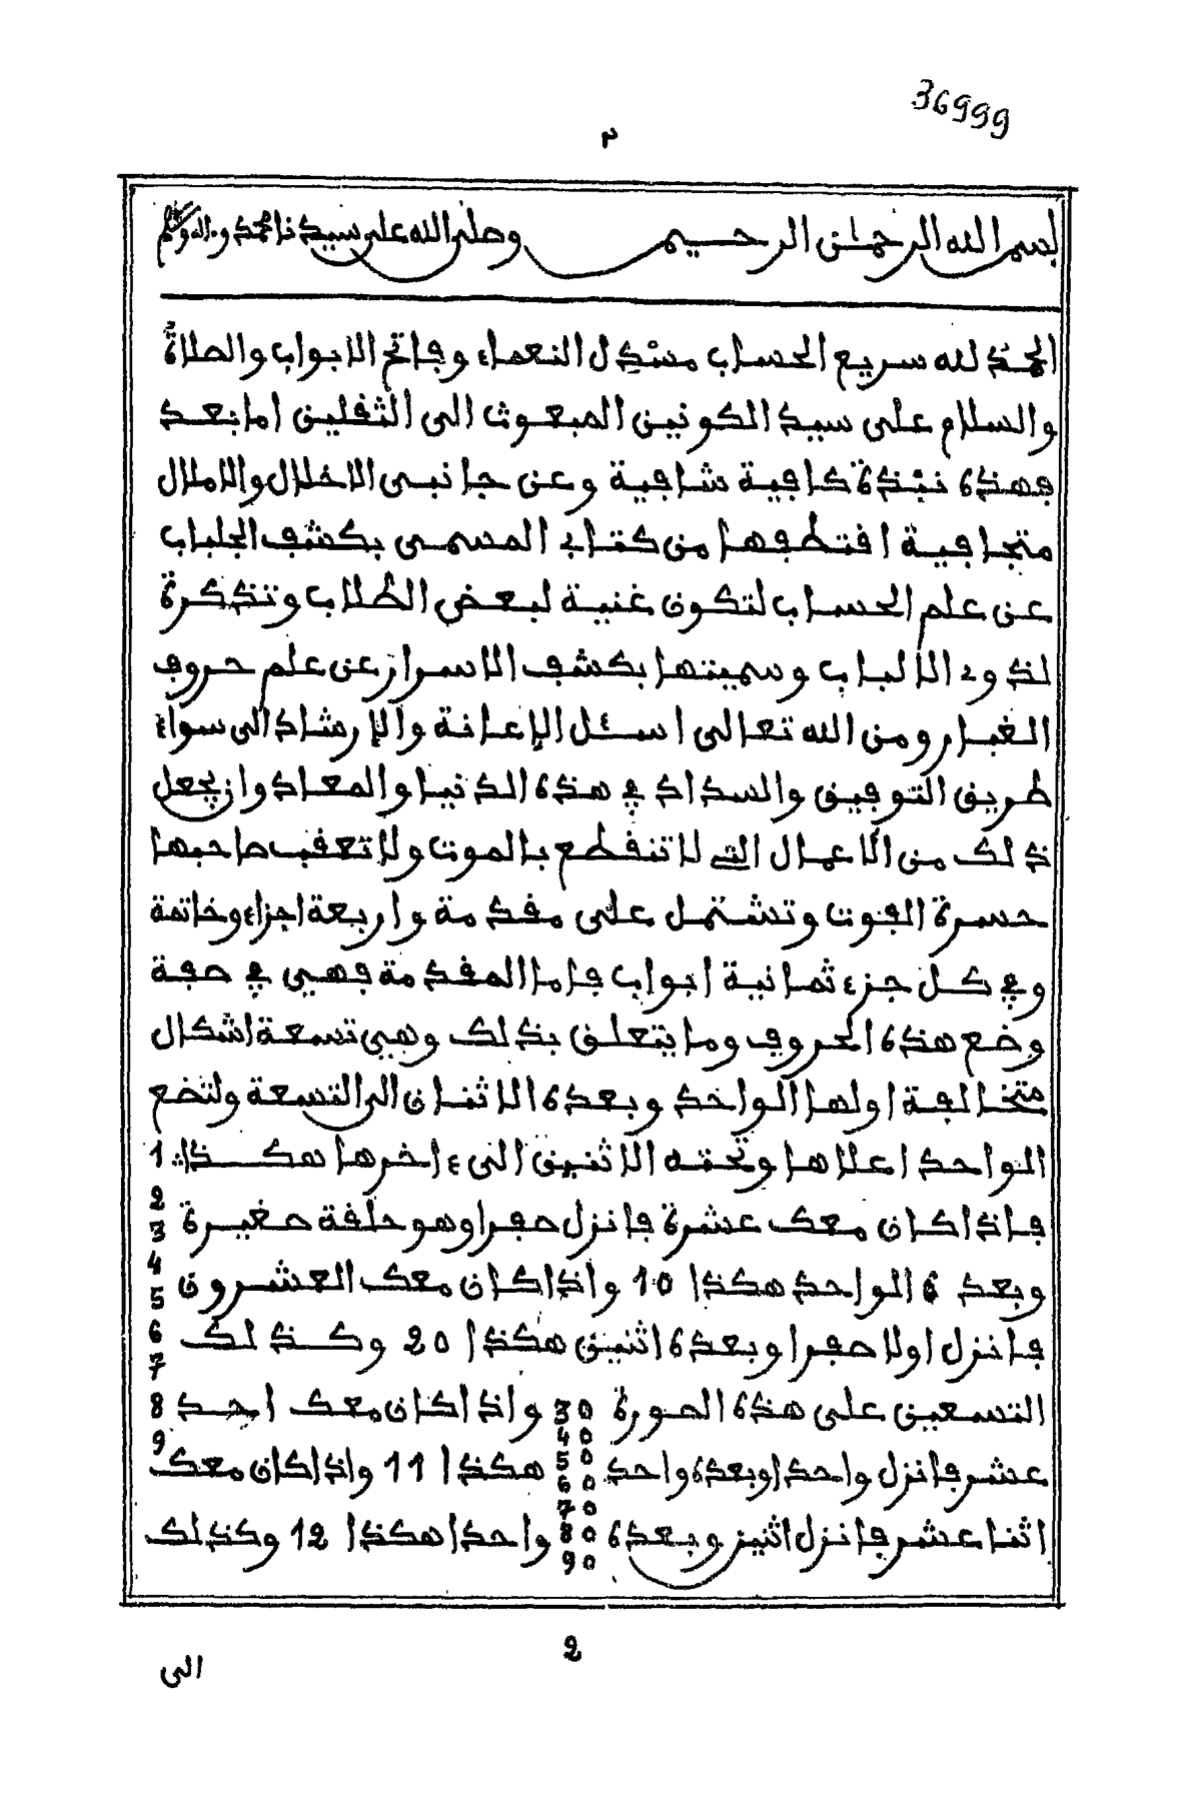 36999
٢
بسم الله الرحمان الرحيم وصلى الله على سيدنا محمد وءاله وسلم
الحمد لله سريع الحساب مسدل النعماء وفاتح الابواب والصلاة
والسلام على سيد الكونين المبعوث الى الثقلين اما بعد
فهذه نبذة كافية شافية وعن جانبى الاخلال والاملال
متجافية اقتطفها من كتابى المسمى بكشف الجلباب
عن علم الحساب لتكون غنية لبعض الطلاب وتذكرة
لذوى الألباب وسميتها بكشف الاسرار عن علم حروف
الغبار ومن الله تعالى اسئل الإعانة والإرشاد الى سواء
طريق التوفيق والسداد فى هذه الدنيا والمعاد وان يجعل
ذلك من الأعمال التى لا تنقطع بالموت ولا تعقب صاحبها
حسرة الفوت وتشتمل على مقدمة واربعة اجزاء وخاتمة
وفى كل جزء ثمانية ابواب فاما المقدمة فهي فى صفة
وضع هذه الحروف وما يتعلق بذلك وهي تسعة اشكال
متخالفة اولها الواحد وبعده الاثنان الى التسعة ولتضع
الواحد اعلاها وتحته الاثنين الى ءاخرها هكذا: 1
2
3
4
5
6
7
8
9
فاذا كان معك عشرة فانزل صفرا وهو حلقة صغيرة
وبعده الواحد هكذا 10 واذا كان معك العشرون
فانزل اولا صفرا وبعده اثنين هكذا 20 وكذلك
التسعين على هذه الصورة 30 واذا كان معك احد
40
50
60
70
80
90
عشر فانزل واحدا وبعده واحد هكذا 11 واذا كان معك
اثنا عشر فانزل اثنين وبعده واحدا هكذا 12 وكذلك
2
الى